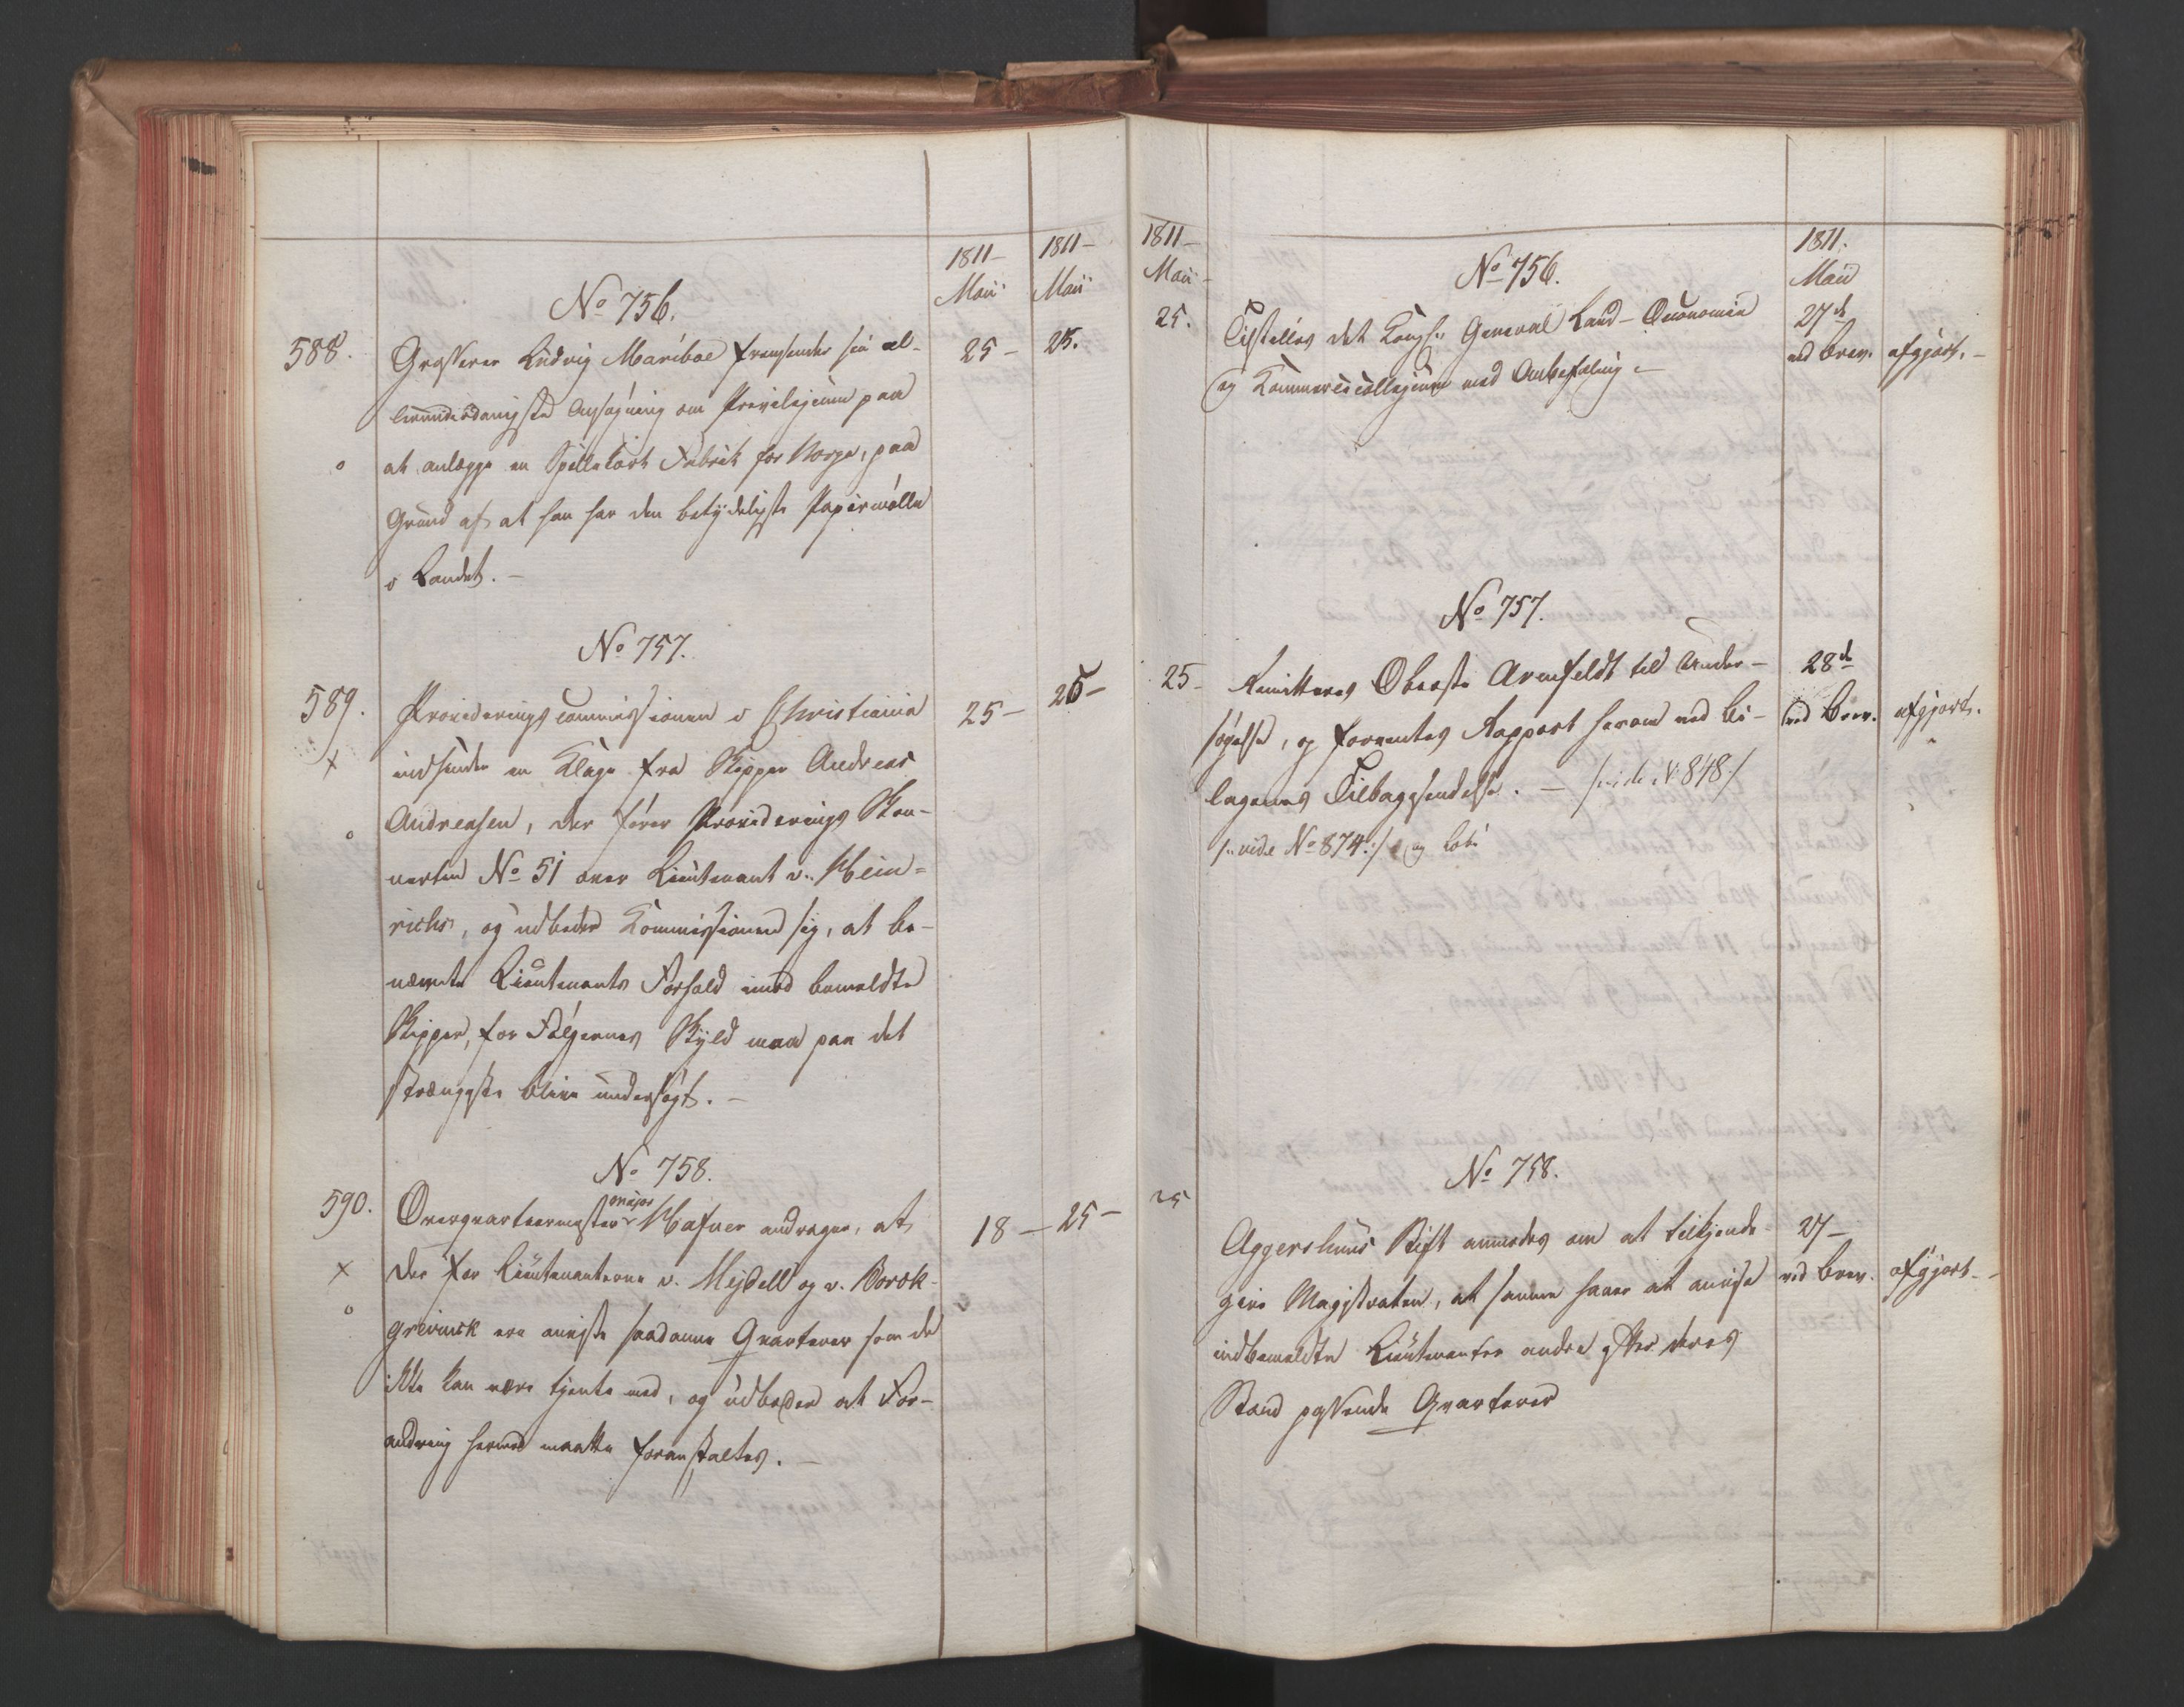 1811–
Maii
1811–
Maii
No 756.
588.
Grosserer Ludvig Mariboe fremsender sin al-
lerunderdanigste Ansøgning om Privilegium paa
at anlægge en Spillekort Fabrik for Norge, paa
Grund af at han har den betydeligste Papiirmølle
i Landet. –
25 –
25.
No 757.
589.
Provideringscommissionen i Christiania
indsender en Klage fra Skipper Andreas
Andreasen, der fører Providerings Skon-
nerten No 51 over Lieutenant v. Hein=
richs, og udbeder Kommissionen sig, at be-
nævnte Lieutenants Forhold imod bemeldte
Skipper, for Følgernes Skyld maa paa det
strængeste blive undersøgt. –
25 –
25 –
No 758.
590.
Overqvarteermester major Hafner andrager, at
der for Lieutenanterne v. Mejdell og v. Borck-
grevinck ere anviiste saadanne Qvarterer som de
ikke kan være tjente med, og udbeder at For-
andring herved maatte foranstaltes. –
18 –
25 –
1811–
Maii
1811.
Maii
No 756.
25.
Tilstilles det Kongl. General Land-Oeconomie
og Kommercecollegium med Anbefaling –
27de
ved Brev.
afgjort. –
No 757.
25 –
Remitteres Oberste Arenfeldt til Under-
søgelse, og forventes Rapport herom ved Bi-
lagenes Tilbagesendelse. – /: vide No 848 :/
/: vide No 874 :/ og
28de
ved Brev.
afgjort.
No 758.
25
Aggershuus Stift anmodes om at tilkjende-
give Magistraten, at samme haver at anvise
indbemeldte Lieutenanter andre efter deres
Stand passende Qvarterer
27 –
ved Brev.
afgjort –